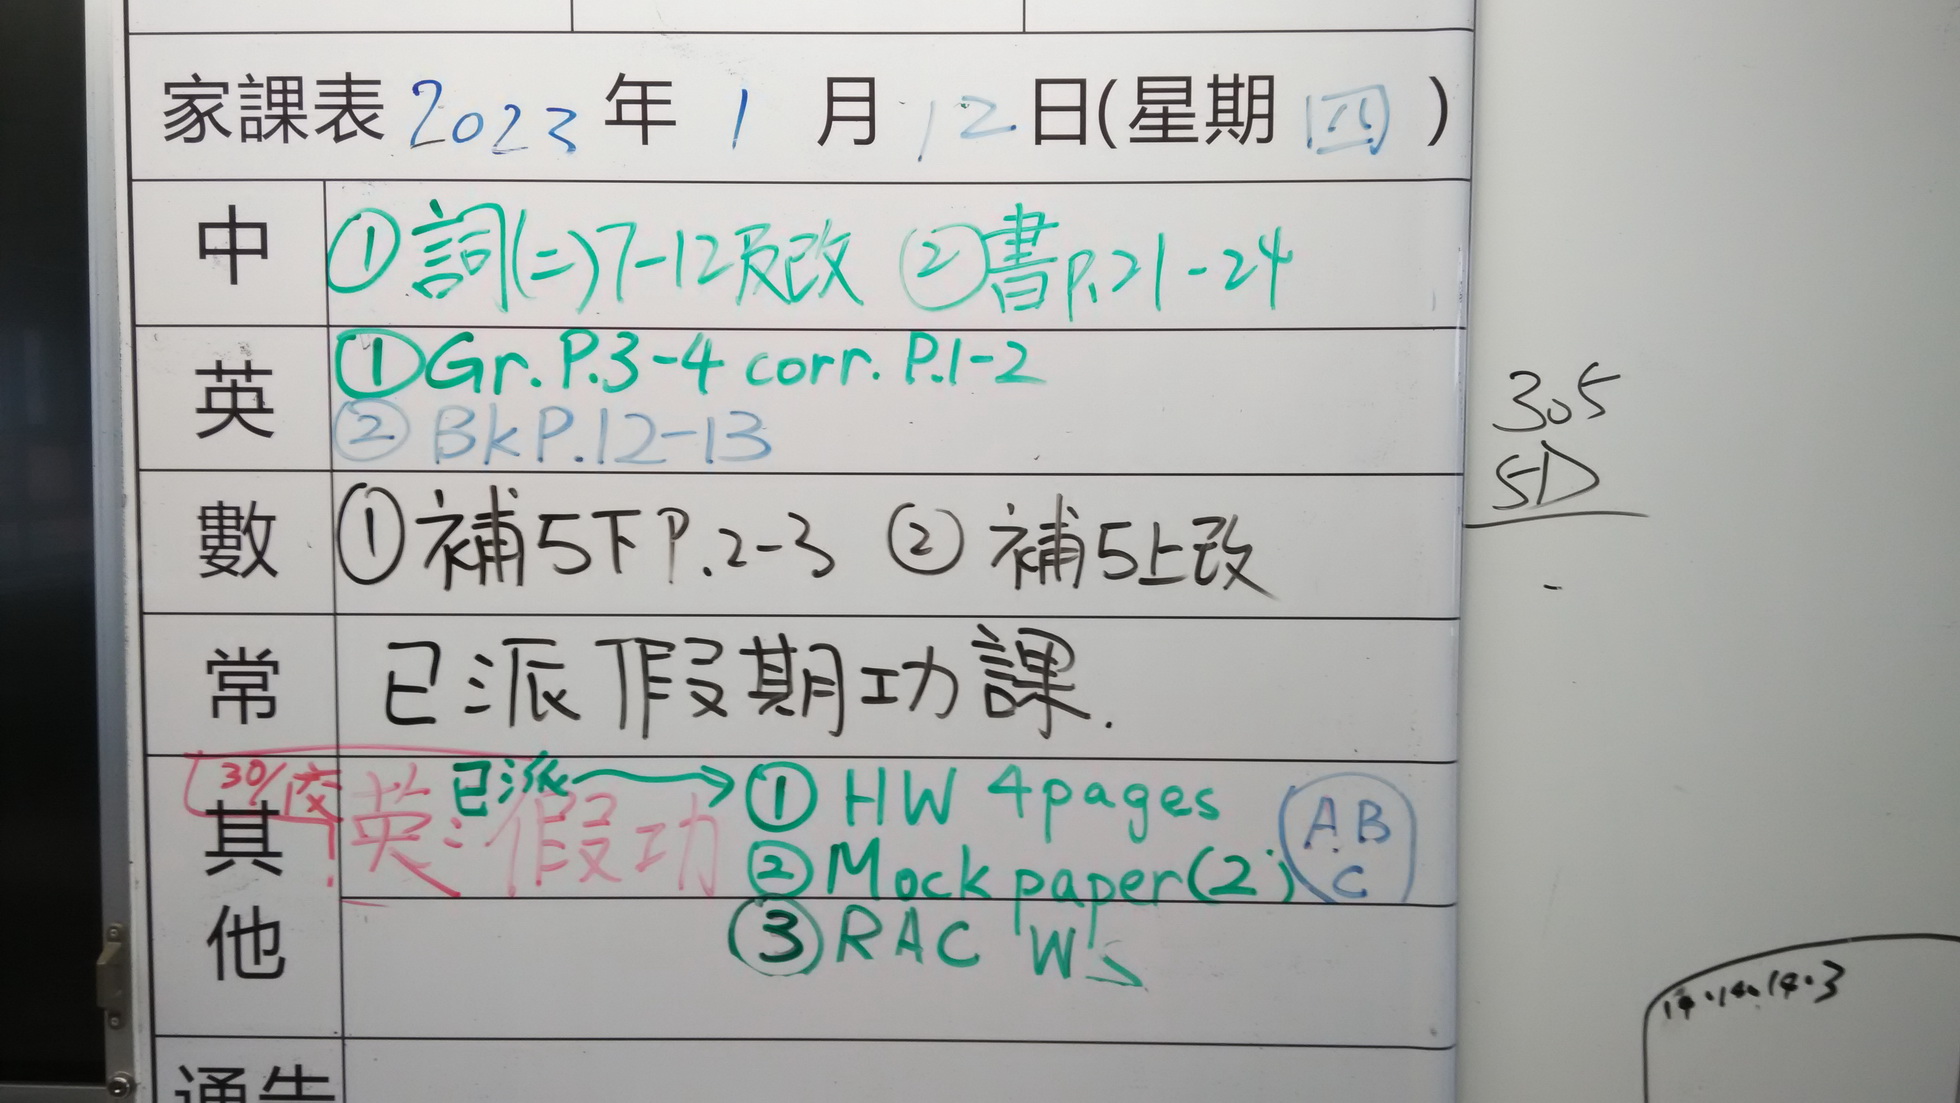 家課表 2023 年 1 月 12 日(星期 四 )
中 ①詞(二)7-12及改 ②書p.21-24
英 ①Gr. P.3-4 corr. P.1-2
②BkP.12-13
數 ①補5下P.2-3 ②補5上改
常 已派假期功課.
其他 30/1交! 英:假功 已派→ ①HW 4pages
②Mock paper(2)
③RAC WS
A B
C
通告
305
5D